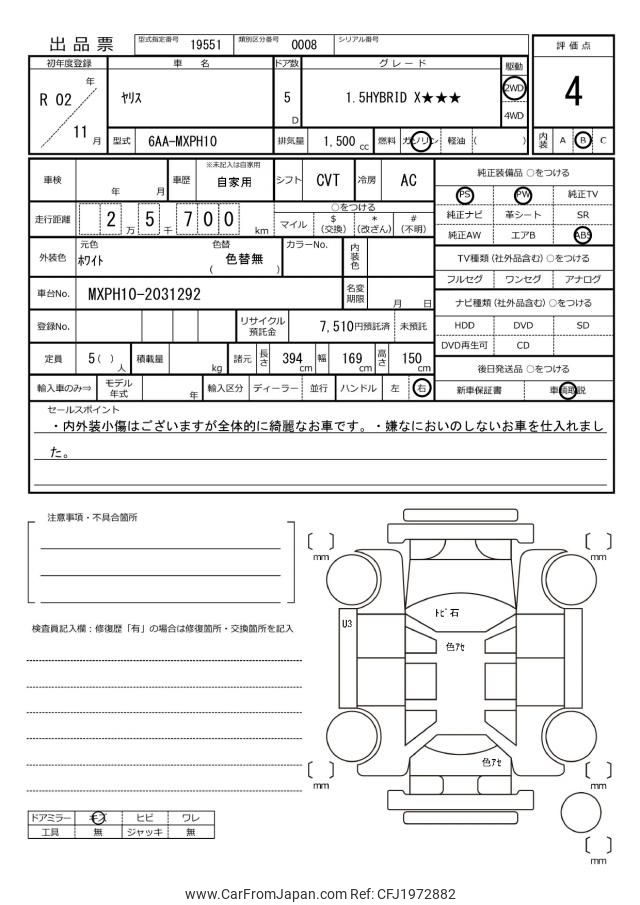 出品票 型式指定番号 19551 類別区分番号 0008 シリアル番号
評価点
4
内装 A B C
初年度登録 車名 ドア数 グレード 駆動
R 02 年 ヤリス 5 D 1.5HYBRID X★★★ 2WD
4WD
11 月 型式 6AA-MXPH10 排気量 1,500 cc 燃料 ガソリン 軽油 ( )
車検 年 月 車歴 ※未記入は自家用
自家用 シフト CVT 冷房 AC
走行距離 2 5 万 7 千 0 0 km
○をつける
マイル $ (交換) * (改ざん) # (不明)
外装色 元色 ホワイト 色替 ( 色替無 ) カラーNo. 内装色
車台No. MXPH10-2031292 名変期限 月 日
登録No. リサイクル預託金 7,510円預託済 未預託
定員 5( ) 人 積載量 kg 諸元 長さ 394 cm 幅 169 cm 高さ 150 cm
輸入車のみ⇒ モデル年式 年 輸入区分 ディーラー 並行 ハンドル 左 右
純正装備品 ○をつける
PS PW 純正TV
純正ナビ 革シート SR
純正AW エアB ABS
TV種類 (社外品含む) ○をつける
フルセグ ワンセグ アナログ
ナビ種類 (社外品含む) ○をつける
HDD DVD SD
DVD再生可 CD
後日発送品 ○をつける
新車保証書 車輌取説
セールスポイント
・内外装小傷はございますが全体的に綺麗なお車です。・嫌なにおいのしないお車を仕入れまし
た。
注意事項・不具合箇所
検査員記入欄：修復歴「有」の場合は修復箇所・交換箇所を記入
ドアミラー キズ ヒビ ワレ
工具 無 ジャッキ 無
[ ] mm
[ ] mm
トビ石
U3
色アセ
色アセ
[ ] mm
[ ] mm
[ ] mm
www.CarFromJapan.com Ref: CFJ1972882